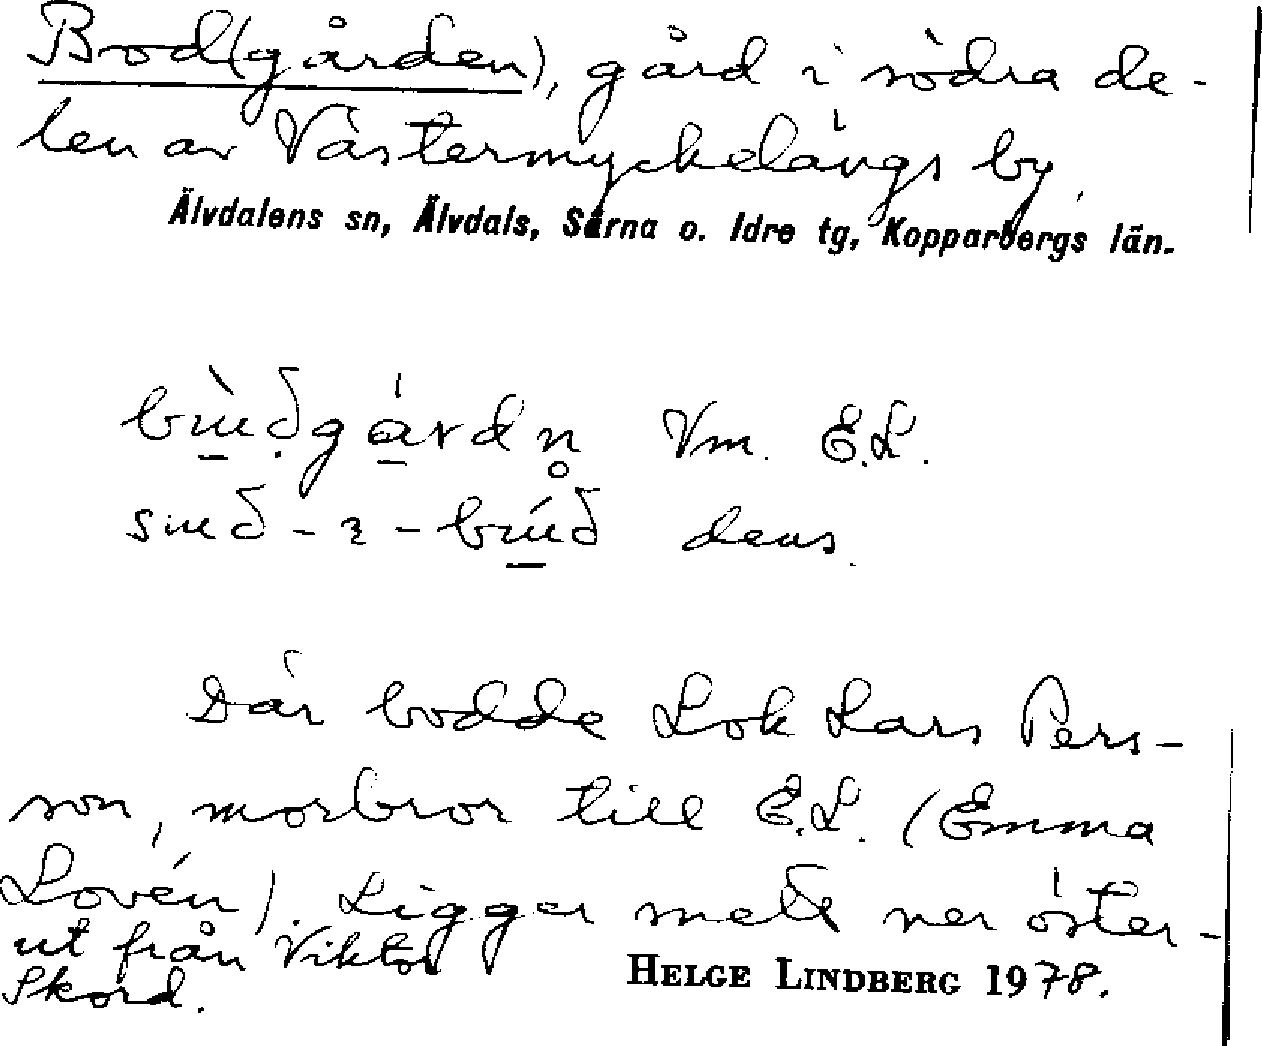 Brod(gården), gård i södra de-
len av Västermyckelängs by.
Älvdalens sn, Älvdals, Särna o. Idre tg, Kopparbergs län.
Vm. E.L.
dens.
Där bodde Lok Lars Pers-
son, morbror till E.L. (Emma
Lovén). Ligger ner öster-
ut från Viktor
Skord.
HELGE LINDBERG 1978.